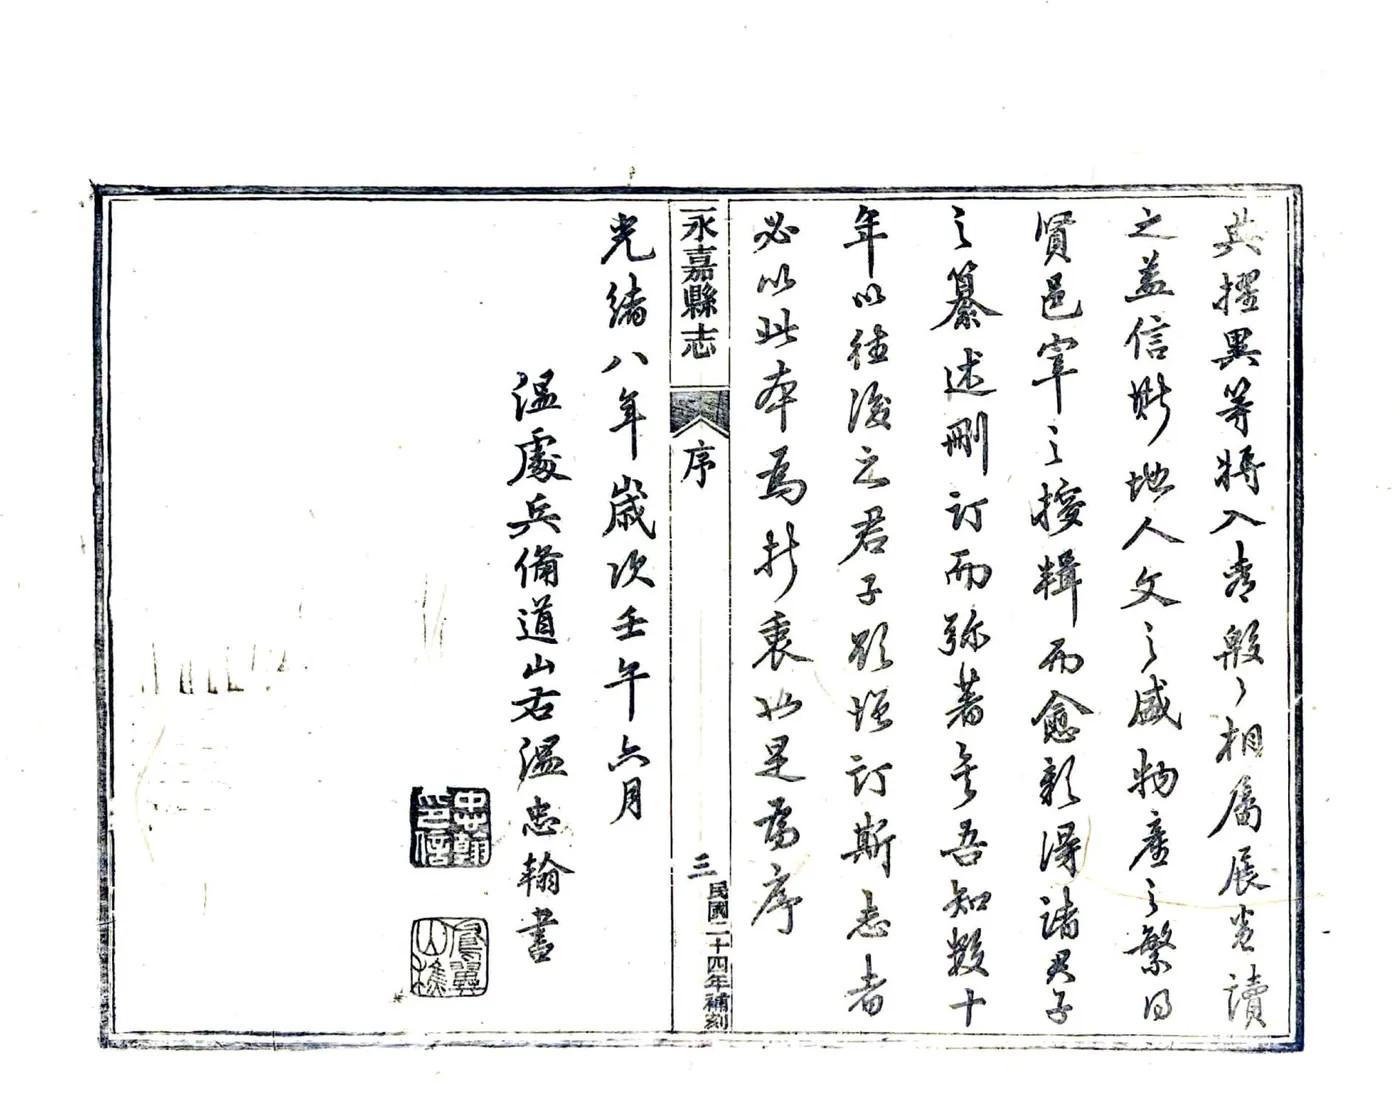 其擢異等將入都殷〻相屬展卷讀
之益信斯地人文之盛物產之繁得
賢邑宰之授輯而愈彰得諸君子
之纂述刪訂而弥著吾知數十
年以往後之君子欲增訂斯志者
必以此本爲折衷也是爲序
永嘉縣志
序
三
民國二十四年補刻
光緒八年歲次壬午六月
溫處兵備道山右溫忠翰書
忠翰之印信
山樵